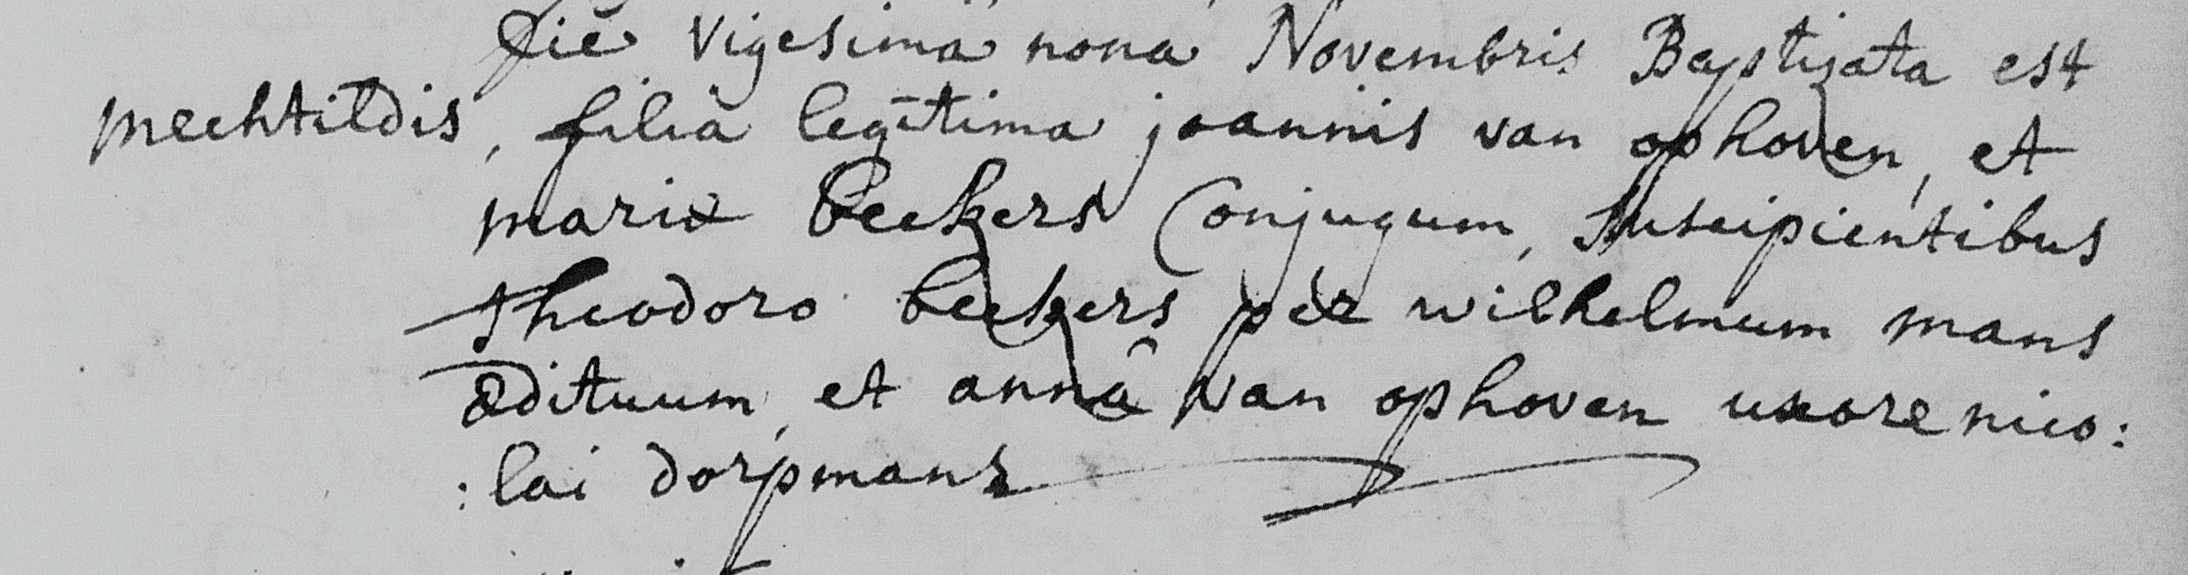 Die vigesima nona Novembris Baptizata est
mechtildis, filia legitima joannis van ophoven, et
mariæ beckers Conjugum, suscipientibus
theodoro beckers per wilhelmum mans
ædituum, et annâ van ophoven uxore nico:
:lai dorpmans